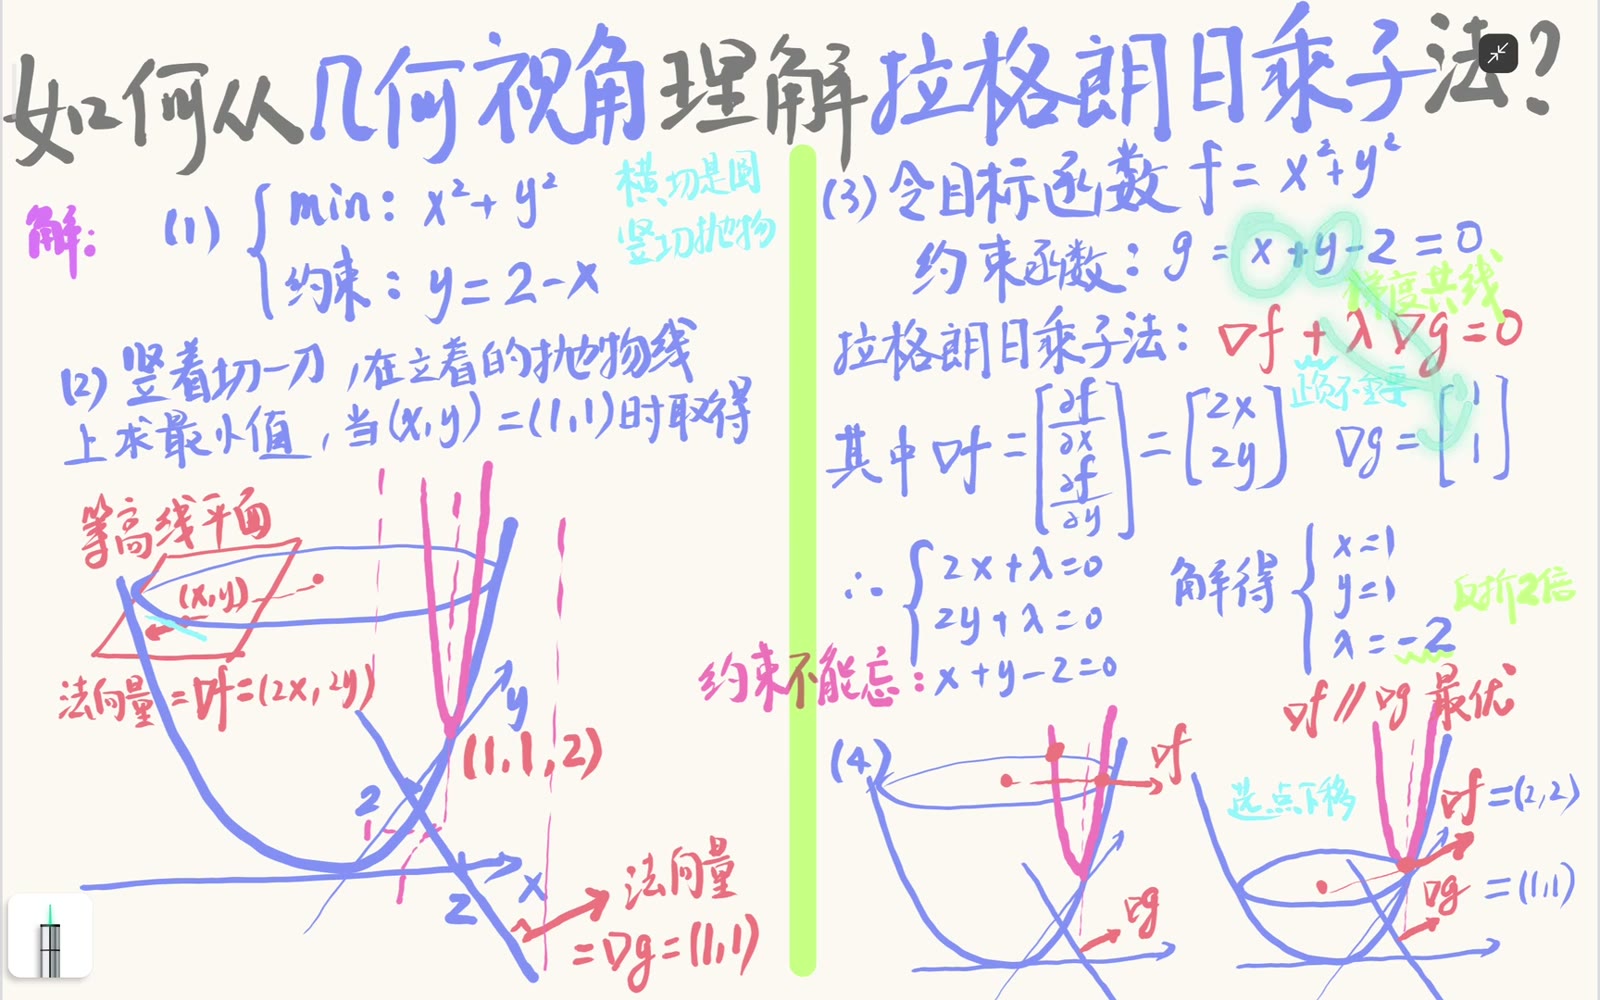 如何从几何视角理解拉格朗日乘子法？
解：
(1) { min: x²+y²
约束：y=2-x
横切是圆
竖切抛物
(2) 竖着切一刀，在立着的抛物线
上求最小值，当(x,y)=(1,1)时取得
等高线平面
(x,y)
法向量=∇f=(2x,2y)
y
(1,1,2)
2
1
2
x
法向量
=∇g=(1,1)
(3) 令目标函数 f=x²+y²
约束函数：g=x+y-2=0
梯度共线
拉格朗日乘子法：∇f+λ∇g=0
正负不重要
其中 ∇f=[∂f/∂x ∂f/∂y]=[2x 2y] ∇g=[1 1]
∴ { 2x+λ=0
2y+λ=0
约束不能忘：x+y-2=0
解得 { x=1
y=1
λ=-2
反折2倍
∇f // ∇g 最优
(4)
∇f
∇g
选点下移
∇f=(2,2)
∇g=(1,1)